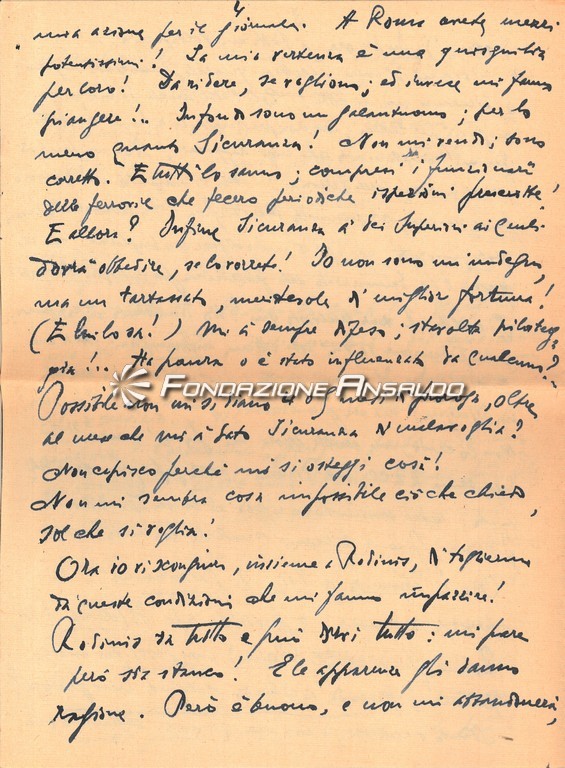 4
mia azione per il Giornale. A Roma avete mezzi
potentissimi! La mia vertenza è una quisquilia
per loro! Da ridere, se vogliono; ed invece mi fanno
piangere!.. In fondo sono un galantuomo; per lo
meno quanto Sicuranza! Non mi vendo; sono
corretto. E tutti lo sanno; compresi i funzionarii
delle ferrovie che fecero periodiche ispezioni prescritte!
E allora? Infine Sicuranza à dei Superiori ai quali
dovrà obbedire, se lo vorrete! Io non sono un indegno,
ma un tartassato, meritevole di miglior fortuna!
(E lui lo sa!) Mi à sempre difeso; stavolta pilateg
gia!... Ha paura o è stato influenzato da qualcuno?
FONDAZIONE ANSALDO
Possibile non mi si diano 4 o 5 mesi di proroga, oltre
al mese che mi à dato Sicuranza di malavoglia?
Non capisco perché mi si osteggi così!
Non mi sembra cosa impossibile ciò che chiedo,
sol che si voglia!
Ora io vi scongiuro, insieme a Rodinis, di togliermi
da queste condizioni che mi fanno impazzire!
Rodinis sa tutto e può dirvi tutto: mi pare
però sia stanco! E le apparenze gli danno
ragione. Però è buono, e non mi abbandonerà,